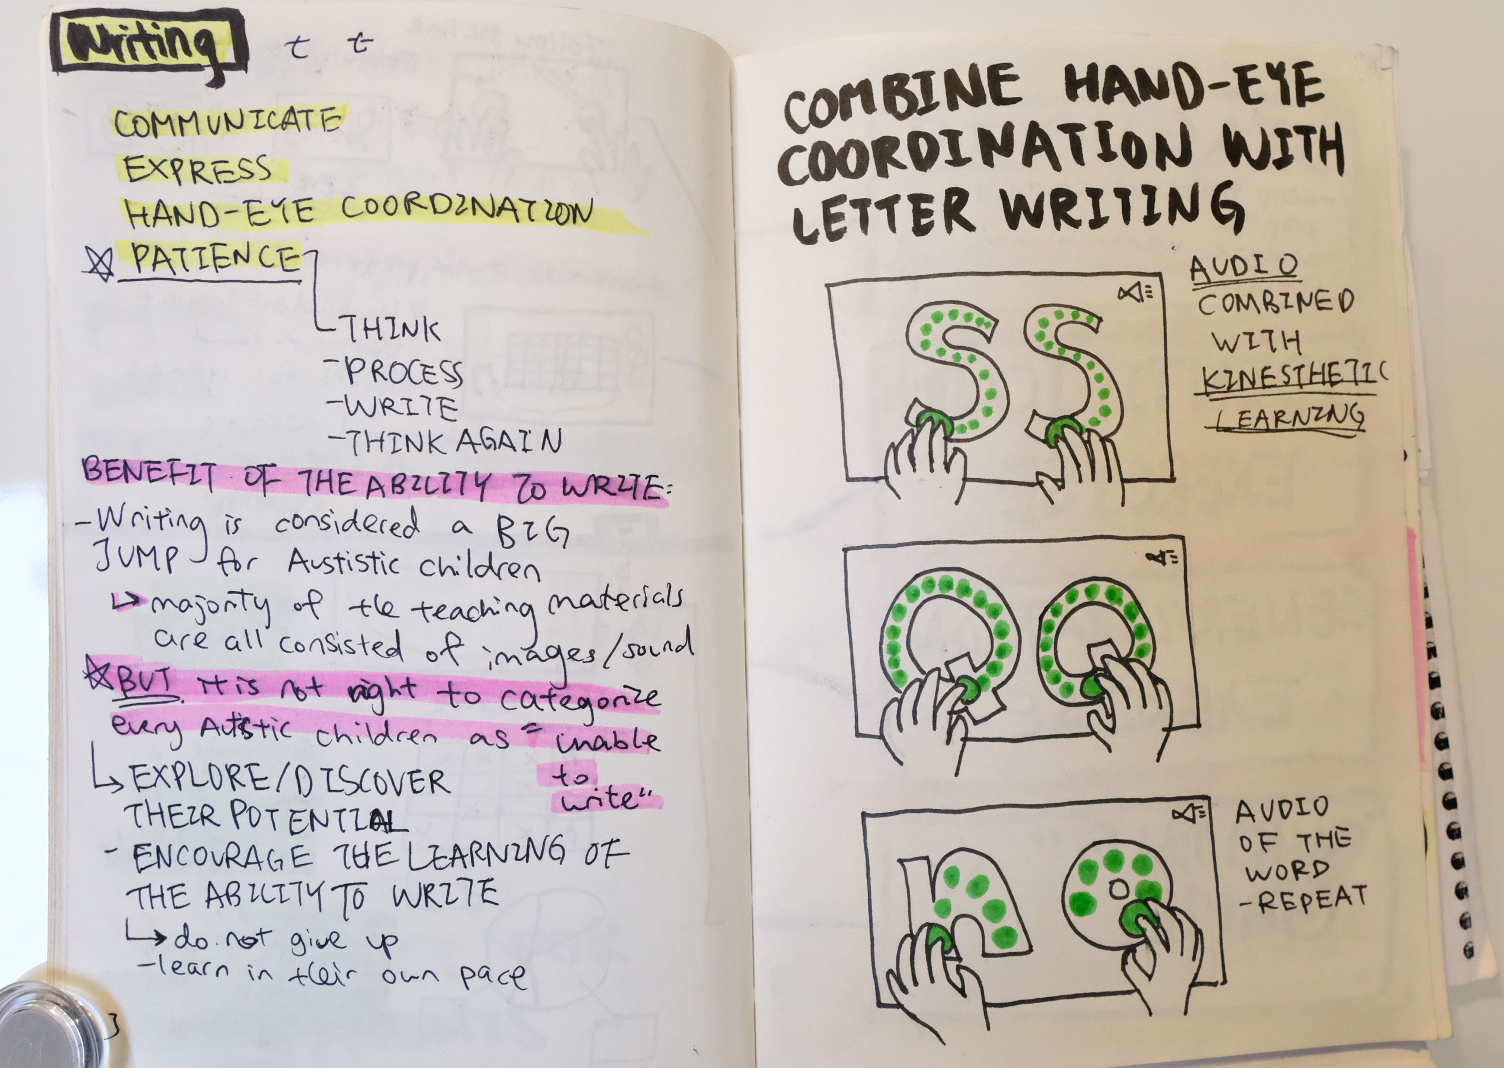 Writing t t
COMMUNICATE
EXPRESS
HAND-EYE COORDINATION
PATIENCE
-THINK
-PROCESS
-WRITE
-THINK AGAIN
BENEFIT OF THE ABILITY TO WRITE:
-Writing is considered a BIG
JUMP for Austistic children
↳ majority of the teaching materials
are all consisted of images/sound
BUT it is not right to categorize
every Autistic children as "unable
to
write"
↳ EXPLORE/DISCOVER
THEIR POTENTIAL
- ENCOURAGE THE LEARNING OF
THE ABILITY TO WRITE
↳ do not give up
-learn in their own pace
COMBINE HAND-EYE
COORDINATION WITH
LETTER WRITING
S S
AUDIO
COMBINED
WITH
KINESTHETIC
LEARNING
Q a
n o
AUDIO
OF THE
WORD
-REPEAT